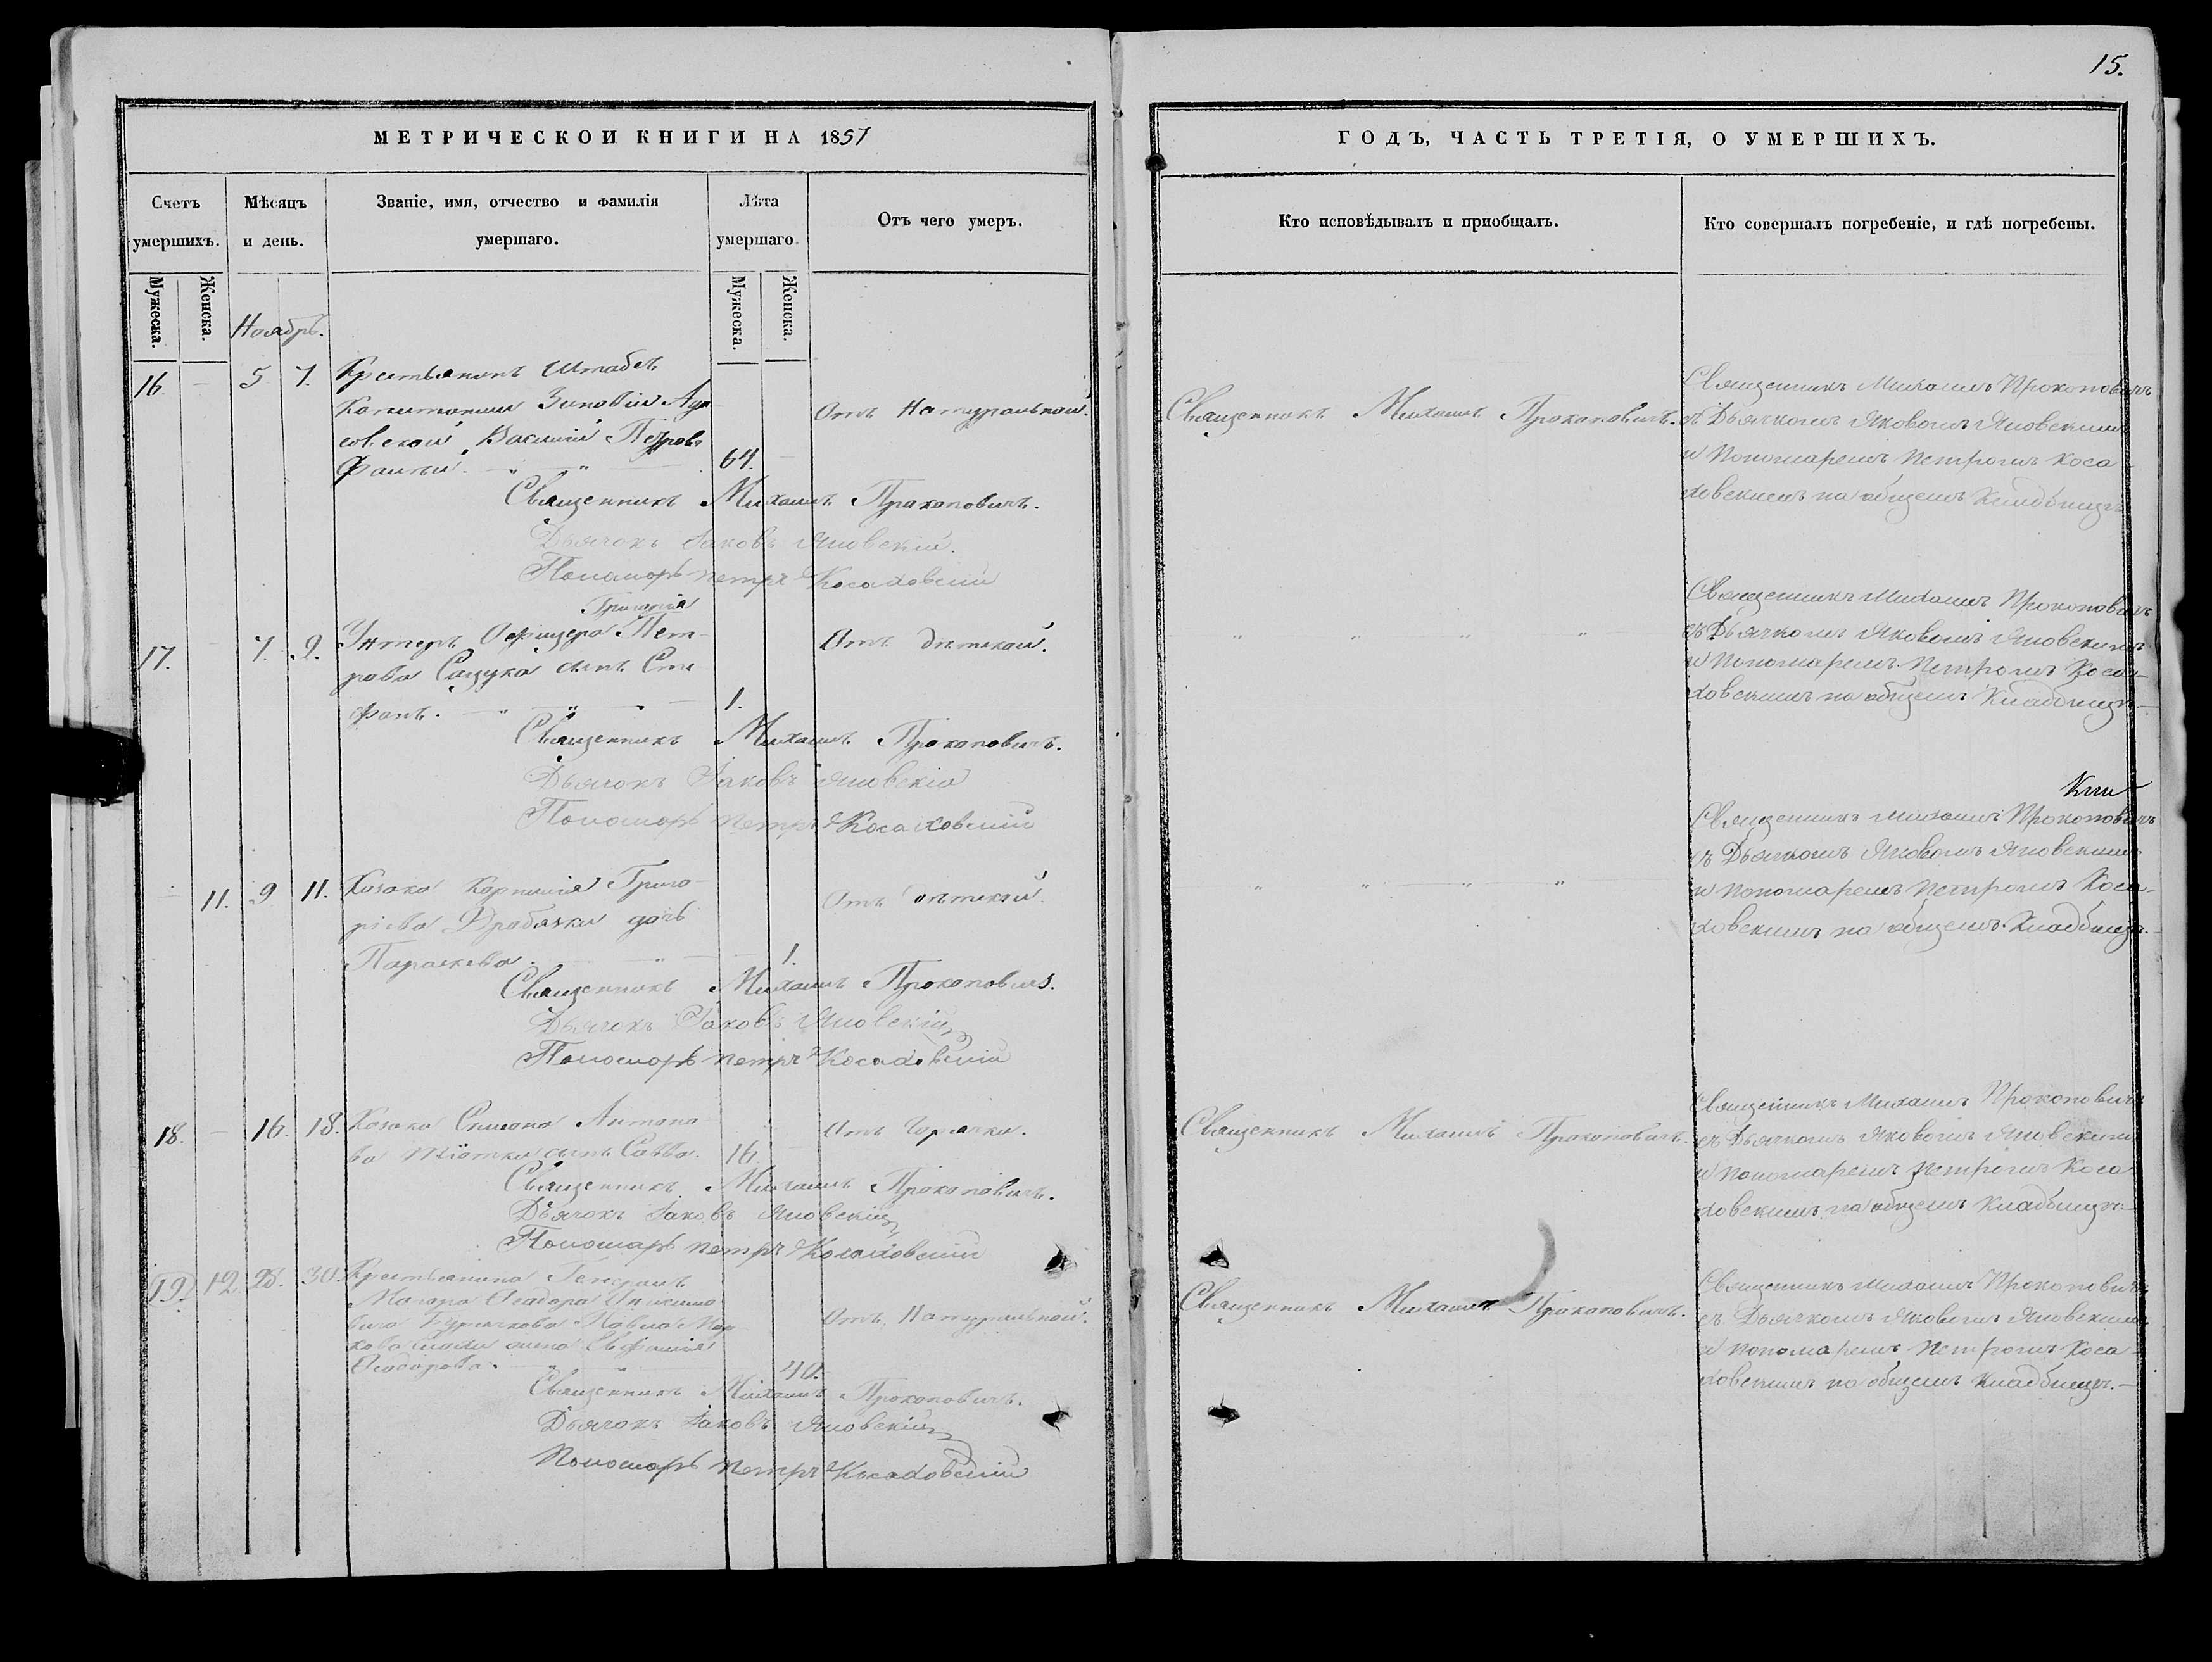 15.
МЕТРИЧЕСКОИ КНИГИ НА 1857
ГОДЪ, ЧАСТЬ ТРЕТІЯ, О УМЕРШИХЪ.
Счетъ умершихъ.
Мѣсяцъ и день.
Званіе, имя, отчество и фамилія умершаго.
Лѣта умершаго.
Отъ чего умеръ.
Кто исповѣдывалъ и приобщалъ.
Кто совершалъ погребеніе, и гдѣ погребены.
Мужеска.
Женска.
Мужеска.
Женска.
Ноябрь.
16. — 5. 7.
Крестьянинъ Штабсъ
Капитанши Зиновіи
Василій Петровъ
64.
Отъ Натуральной.
Священникъ Михаилъ Прокоповичъ.
Священникъ Михаилъ Прокоповичъ
съ Дьячкомъ Яковомъ Яновскимъ
и Пономаремъ Петромъ Коса-
ховскимъ на общемъ Кладбищѣ
Священникъ Михаилъ Прокоповичъ.
Дьячокъ Іаковъ Яновскій.
Пономарь Петръ Косаховскій
17. — 7. 9.
Григорія
Унтеръ Офицера Пет-
рова Сацука сынъ Сте-
фанъ.
1.
Отъ дѣтской.
Священникъ Михаилъ Прокоповичъ
съ Дьячкомъ Яковомъ Яновскимъ
и Пономаремъ Петромъ Коса-
ховскимъ на общемъ Кладбищѣ —
Священникъ Михаилъ Прокоповичъ.
Дьячокъ Іаковъ Яновскій
Пономарь Петръ Косаховскій
— 11. 9 11.
Козака Корнилія Григо-
рьева дочь
Параскева.
1.
Отъ дѣтской.
Священникъ Михаилъ Прокоповичъ
съ Дьячкомъ Яковомъ Яновскимъ
и Пономаремъ Петромъ Коса-
ховскимъ на общемъ Кладбищѣ.
Священникъ Михаилъ Прокоповичъ.
Дьячокъ Іаковъ Яновскій
Пономарь Петръ Косаховскій
18. — 16. 18.
Козака Симона Антоно-
ва сынъ Савва.
16.
Отъ Горячки.
Священникъ Михаилъ Прокоповичъ.
Священникъ Михаилъ Прокоповичъ
съ Дьячкомъ Яковомъ Яновскимъ
и Пономаремъ Петромъ Коса-
ховскимъ на общемъ Кладбищѣ.—
Священникъ Михаилъ Прокоповичъ.
Дьячокъ Іаковъ Яновскій
Пономарь Петръ Косаховскій
19. 12. 28. 30.
Крестьянина Генералъ
Маіора Ѳеодора
Павла
жена Евфимія
Ѳеодорова.
40.
Отъ Натуральной.
Священникъ Михаилъ Прокоповичъ.
Священникъ Михаилъ Прокоповичъ
съ Дьячкомъ Яковомъ Яновскимъ
и Пономаремъ Петромъ Коса-
ховскимъ на общемъ Кладбищѣ.—
Священникъ Михаилъ Прокоповичъ.
Дьячокъ Іаковъ Яновскій
Пономарь Петръ Косаховскій